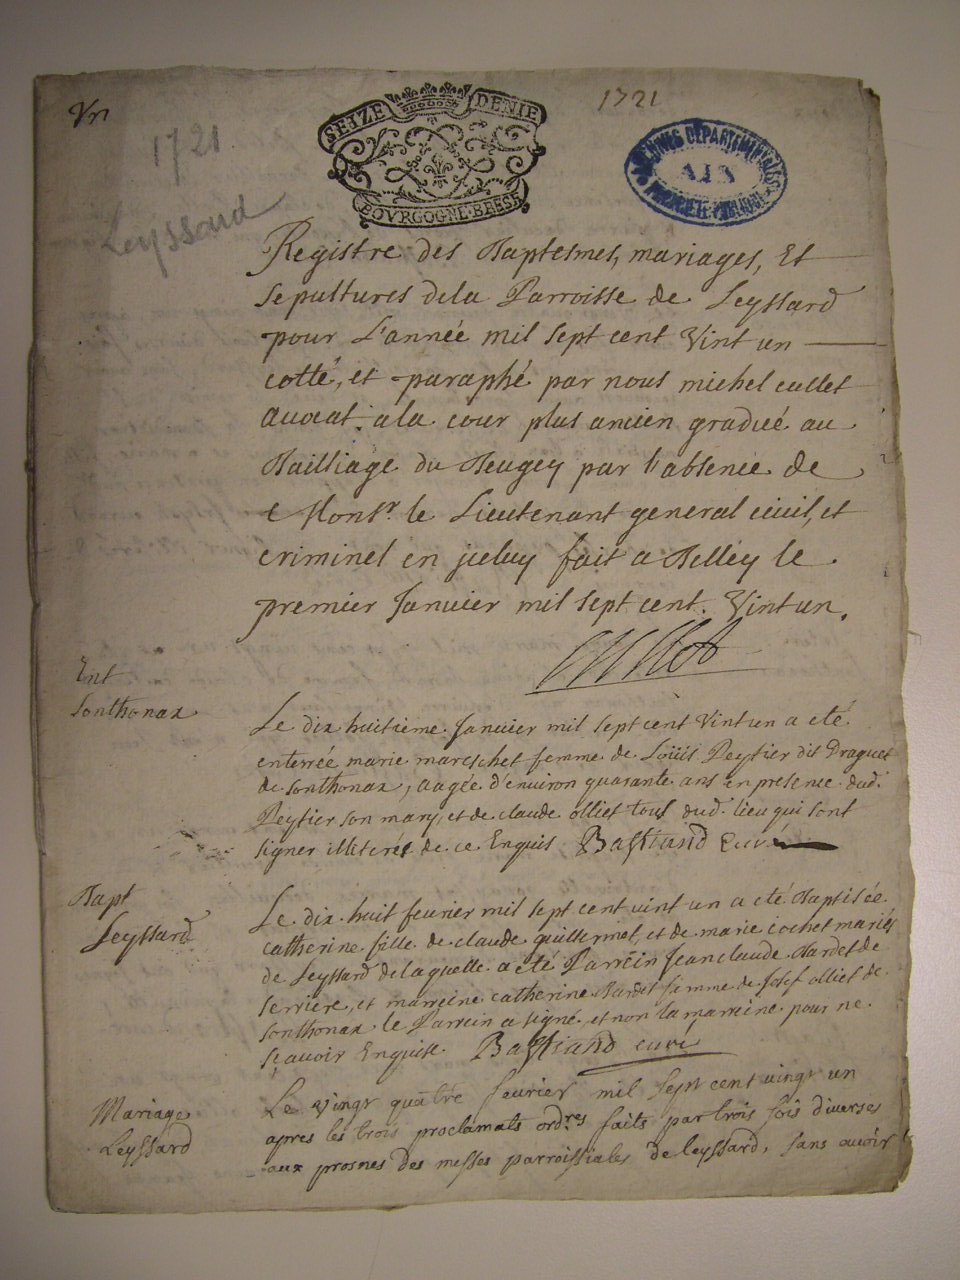 Vn
1721
1721
Leyssard
SEIZE DENIE
BOVRGOGNE·BRESSE
ARCHIVES DÉPARTEMENTALES
AIN
PROPRIÉTÉ PUBLIQUE
Registre des Baptesmes, mariages, Et
sepultures dela Parroisse de Leyssard
pour L'année mil sept cent Vint un
cotté, et paraphé par nous michel cullet
avocat ala cour plus ancien gradué au
Bailliage du Beugey par l'absence de
Monsr. le Lieutenant general civil, et
criminel en iceluy fait a Belley le
premier Janvier mil sept cent Vint un.
Cullet
Ent
sonthonax
Le dix huitieme Janvier mil sept cent Vint un a eté
enterrée marie mareschet femme de Loüis Peytier dit Draguet
de sonthonax, aagée d'environ quarante ans en presence dud.
Peytier son mary, et de claude olliet tous dud. lieu qui sont
signer illiterés de ce Enquis Bastiand Curé
Bapt
Leyssard
Le dix huit fevrier mil sept cent vint un a eté Baptisée
catherine fille de claude guillermet, et de marie cochet mariés
de Leyssard de laquelle a eté Parrein Jean claude Bardet de
serriere, et marreine catherine Bardet femme de Josef olliet de
sonthonax le Parrein a signé, et non la marreine pour ne
sçavoir Enquise. Bastiand curé
Mariage
Leyssard
Le vingt quatre fevrier mil sept cent vingt un
apres les trois proclamats ordres faits par trois fois diverses
aux prosnes des messes parroissiales de leyssard, sans avoir